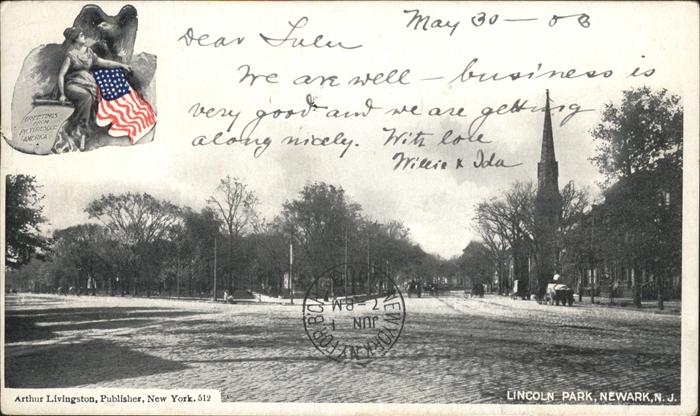 May 30 - 03
Dear Lulu
We are well - business is
very good and we are getting
along nicely. With love
Willie & Ida
GREETINGS
FROM
PICTURESQUE
AMERICA
NEW YORK, N.Y.
JUN 1
2 - PM
Arthur Livingston, Publisher, New York. 512
LINCOLN PARK, NEWARK, N.J.